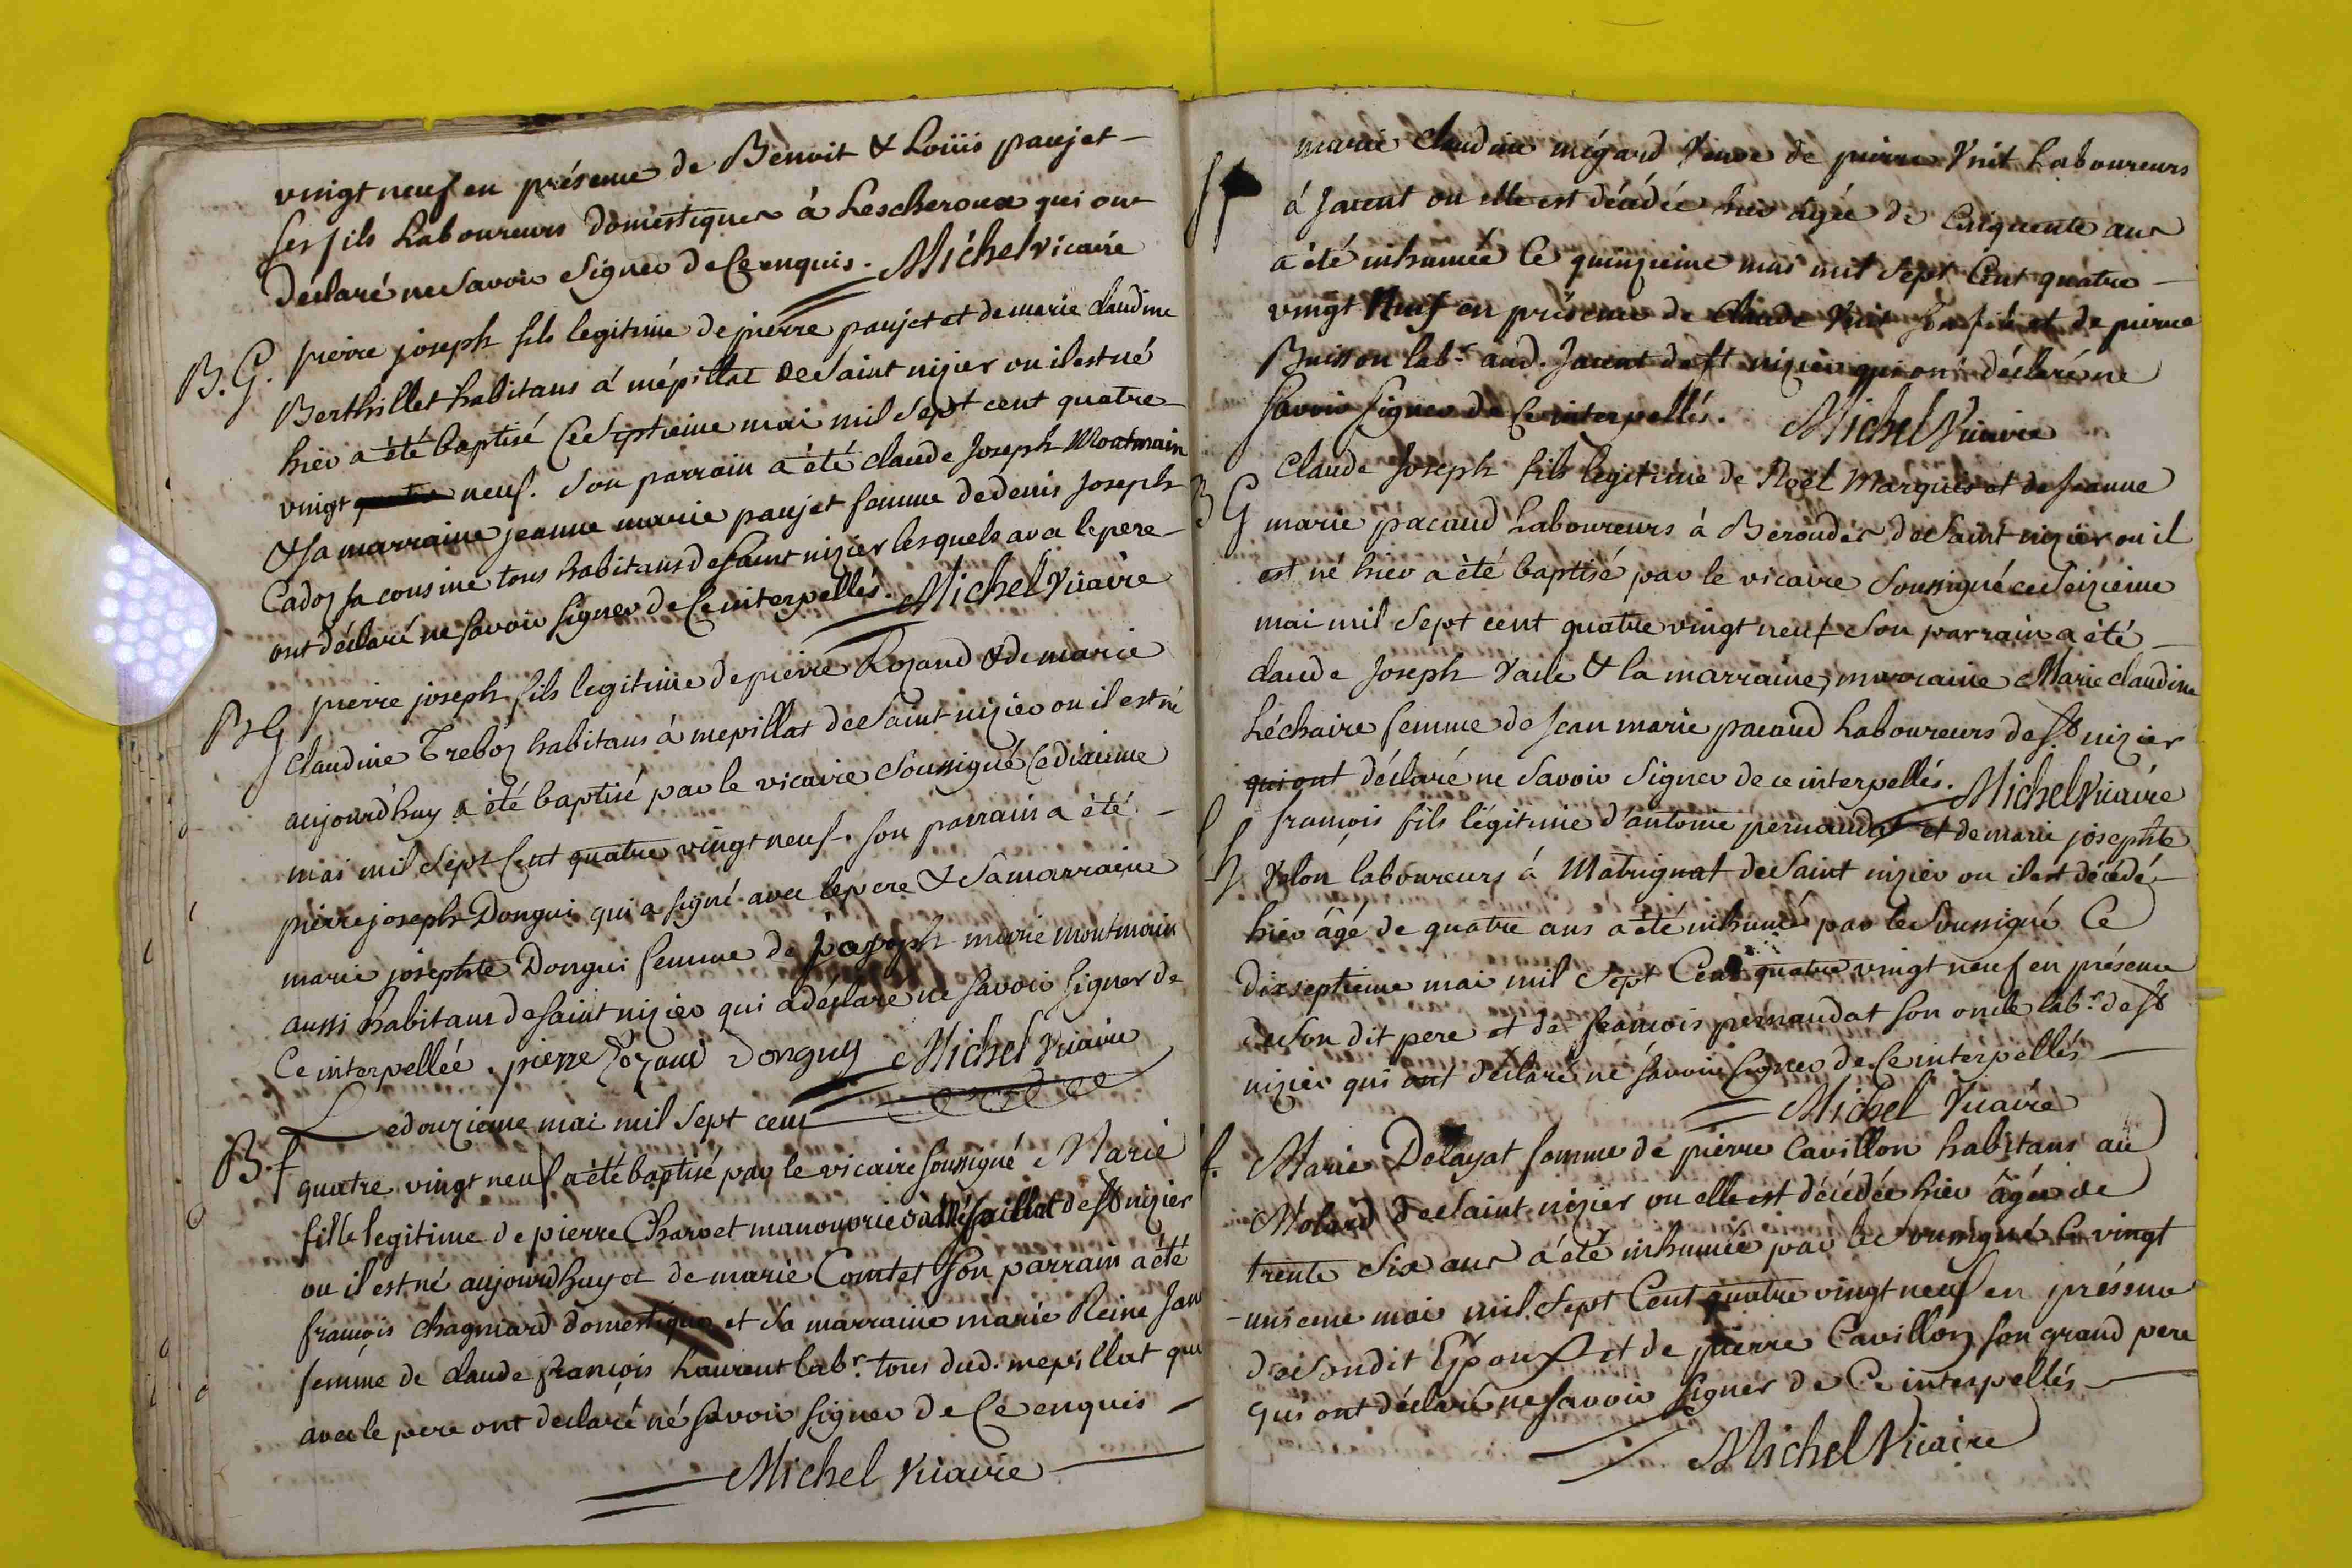 vingt neuf en présence de Benoit & Loüis paujet
ses fils Laboureurs domestiques à Lescheroux qui ont
déclaré ne savoir signer de ce enquis. Michel vicaire
B. G. pierre joseph fils legitime de pierre paujet et de marie claudine
Berthillet habitans à mépillat de saint nizier ou il est né
hier a été baptisé ce septieme mai mil sept cent quatre
vingt neuf. son parrain a été claude Joseph Montmain
& sa marraine jeanne marie paujet femme de denis Joseph
Cadoz sa cousine tous habitans de saint nizier lesquels avec le pere
ont déclaré ne savoir signer de ce interpellés. Michel Vicaire
B G pierre joseph fils legitime de pierre Rozand & de marie
claudine Treboz habitans à mepillat de saint nizier ou il est né
aujourd'huy a été baptisé par le vicaire soussigné ce dixieme
mai mil sept cent quatre vingt neuf. son parrain a été
pierre joseph Dongui qui a signé avec le pere & sa marraine
marie josephte Dongui femme de joseph marie montmain
aussi habitans de saint nizier qui a déclaré ne savoir signer de
ce interpellée. pierre Rozand Donguy Michel Vicaire
Le douzieme mai mil sept cent
B. f quatre vingt neuf a été baptisé par le vicaire soussigné Marie
fille legitime de pierre Charvet manouvrier de st nizier
ou il est né aujourd'huy et de marie Comtet son parrain a été
francois chagniard domestique et sa marraine marie Reine Jan
femme de claude francois Laurent labr. tous dud. mepillat qui
avec le pere ont declaré né savoir signer de ce enquis
Michel Vicaire
marie claudine mégard Veuve de pierre Vuit Laboureurs
à Javent ou elle est décédée hier agée de cinquente ans
a été inhumée le quinzieme mai mil sept cent quatre
vingt neuf en présence de claude Vuit son fils et de pierre
Buisson labr. aud. Javent de st nizier qui ont déclaré ne
savoir signer de ce interpellés. Michel Vicaire
Claude Joseph fils legitime de Noël Marquis et de Jeanne
B G marie pacaud Laboureurs à Beroudes de saint nizier ou il
est né hier a été baptisé par le vicaire soussigné ce seizieme
mai mil sept cent quatre vingt neuf son parrain a été
claude Joseph & la marraine, marraine Marie claudine
Léchaire femme de Jean marie pacaud Laboureurs de st nizier
qui ont déclaré ne savoir signer de ce interpellés. Michel Vicaire
francois fils légitime d'antoine pernaudat et de marie josephte
Velon laboureurs à Matrignat de saint nizier ou il est décédé
hier âgé de quatre ans a été inhumé par le soussigné ce
dix septieme mai mil sept cent quatre vingt neuf en présence
de son dit pere et de francois pernaudat son oncle labr. de st
nizier qui ont déclaré né savoir signer de ce interpellés
Michel Vicaire
f. Marie Delayat femme de pierre Cavillon habitans au
Molard de saint nizier ou elle est décédée hier âgée de
trente six ans a été inhumée par le soussigné ce vingt
unieme mai mil sept Cent quatre vingt neuf en présence
de son dit Epoux et de pierre Cavillon son grand pere
qui ont déclaré ne savoir signer de ce interpellés
Michel Vicaire